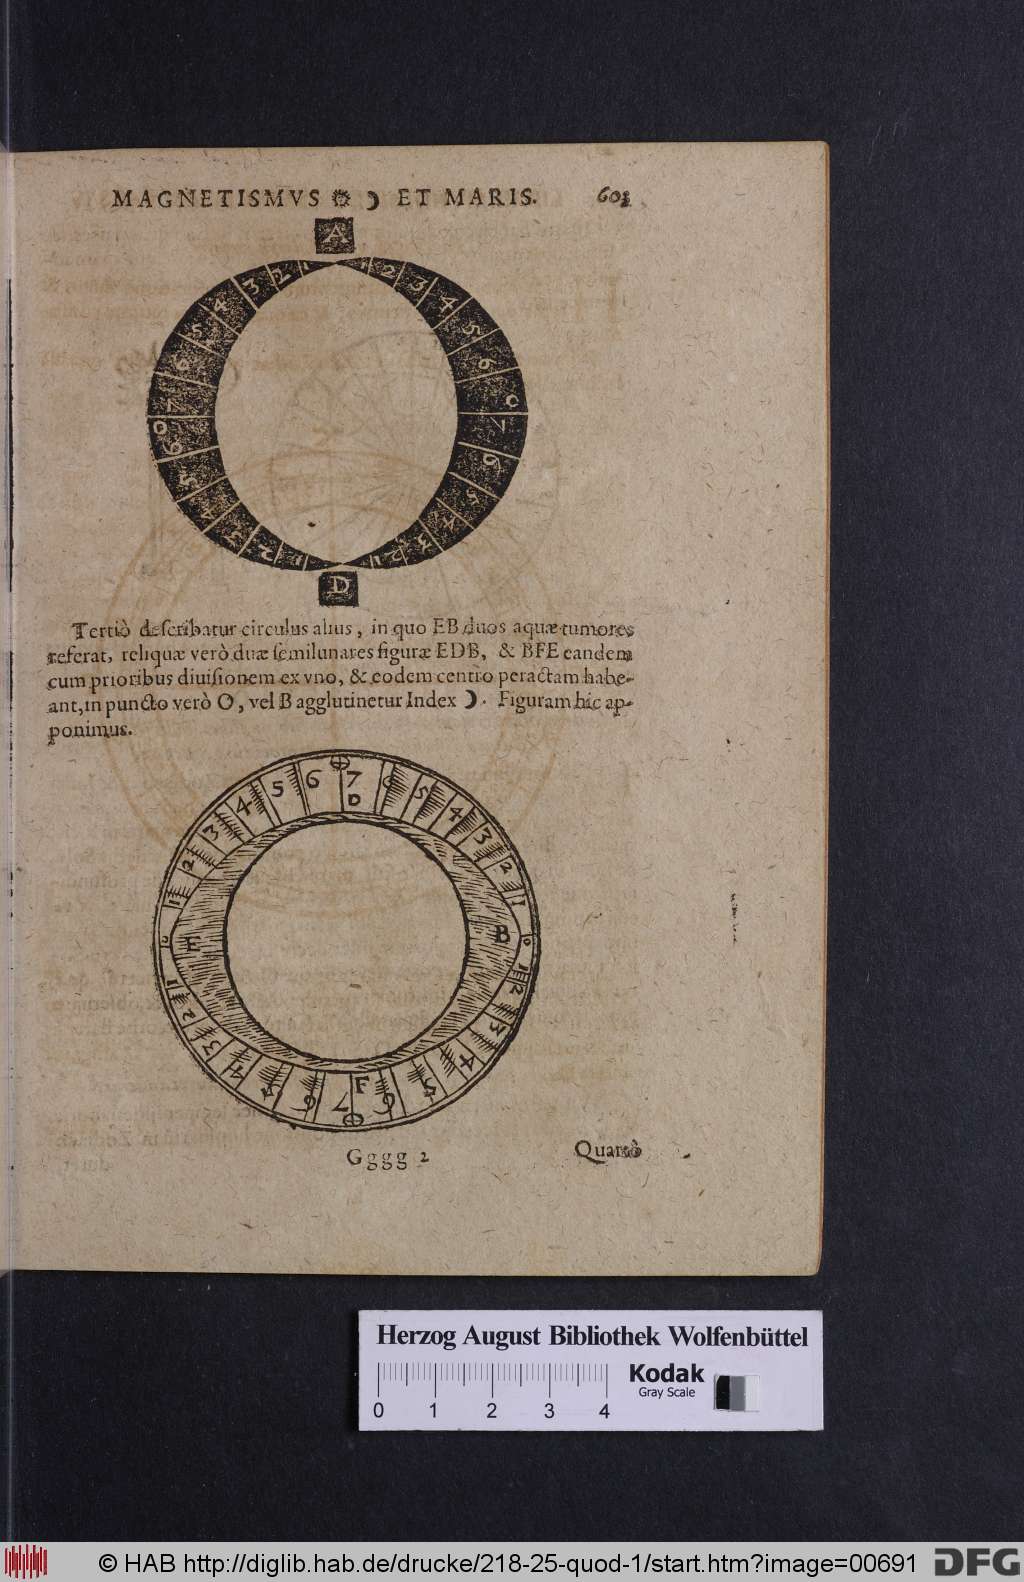 MAGNETISMVS ☼ ☽ ET MARIS. 603
A
1 2 3 4 5 6 0 7 6 5 4 3 2 1
1 2 3 4 5 6 7 0 6 5 4 3 2 1
D
Tertiò describatur circulus alius, in quo EB duos aquæ tumores
referat, reliquæ verò duæ semilunares figuræ EDB, & BFE eandem
cum prioribus diuisionem ex vno, & eodem centro peractam habe-
ant, in puncto verò O, vel B agglutinetur Index ☽. Figuram hic ap-
ponimus.
1 2 3 4 5 6 7 6 5 4 3 2 1
D
E B
1 2 3 4 4 6 7 6 5 4 3 2 1
F
Gggg 2 Quartò
Herzog August Bibliothek Wolfenbüttel
Kodak
Gray Scale
0 1 2 3 4
© HAB http://diglib.hab.de/drucke/218-25-quod-1/start.htm?image=00691
DFG